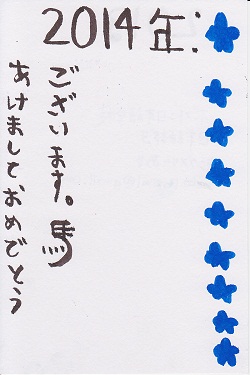 2014年:
あけましておめでとう
ございます。馬